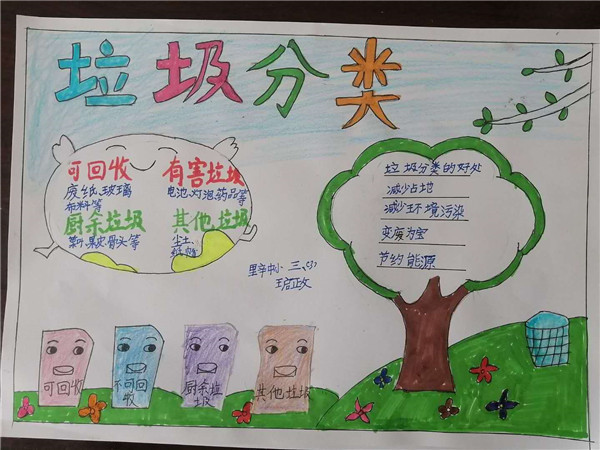 垃圾分类
可回收
废纸、玻璃
布料等
有害垃圾
电池、灯泡、药品等
厨余垃圾
果皮骨头等
其他垃圾
尘土、
垃圾分类的好处
减少占地
减少环境污染
变废为宝
节约能源
可回收
不可回
收
厨余垃
圾
其他垃圾